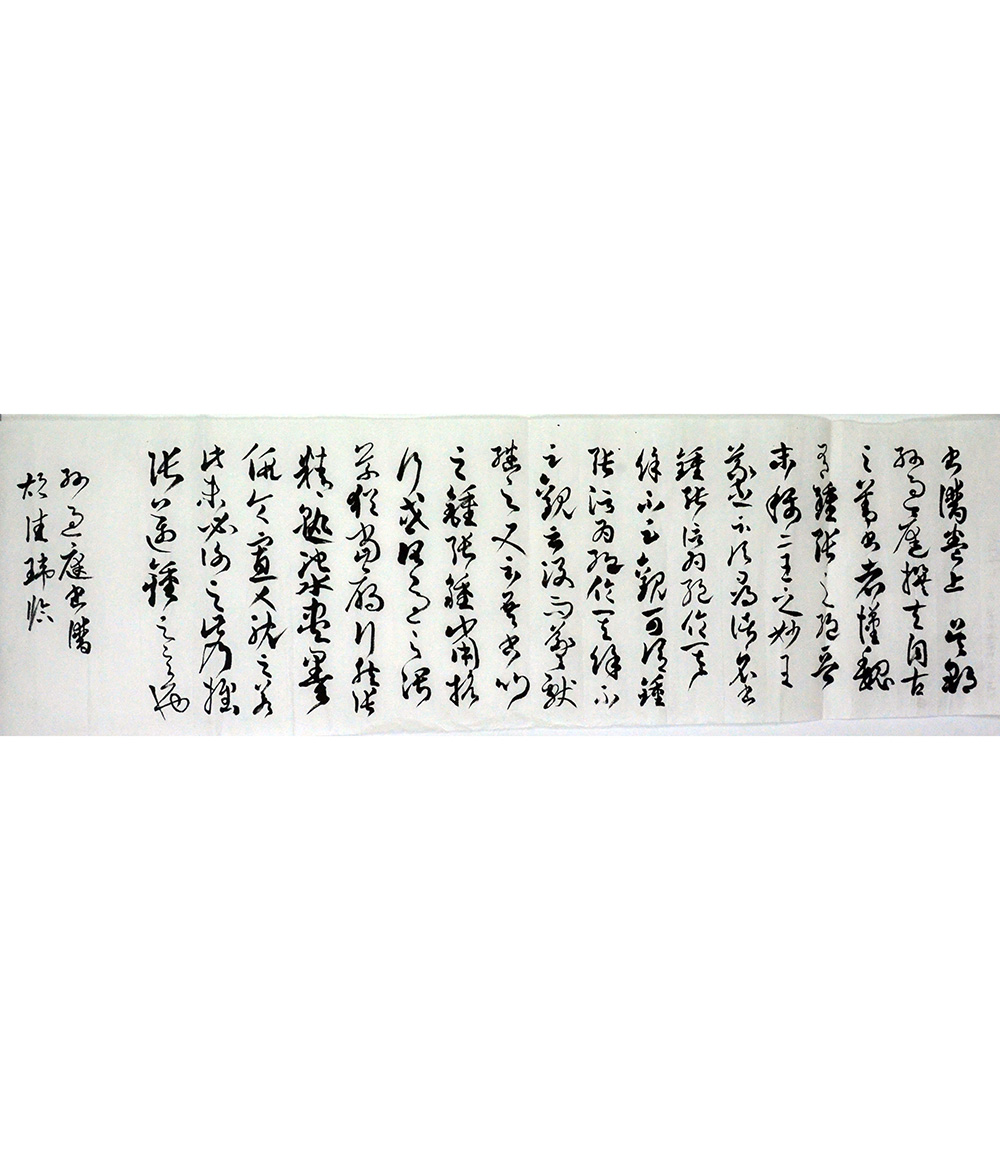 書譜卷上 吳郡
孫過庭撰夫自古
之善書者漢魏
有鍾張之絕晉
末稱二王之妙王
羲之云頃尋諸名書
鍾張信為絕倫其
餘不足觀可謂鍾
張信為絕倫其餘不
足觀云沒而羲獻
繼之又云吾書比
之鍾張鍾當抗
行或謂過之張
草猶當雁行然張
精熟池水盡墨
假令寡人耽之若
此未必謝之此乃推
張邁鍾之意也
孫過庭書譜
佳瑋臨